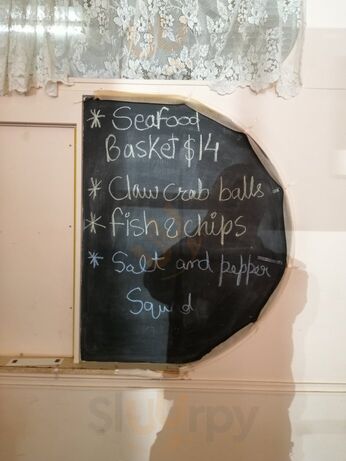 * Seafood
Basket $14
* Claw crab balls
* fish & chips
* Salt and pepper
Squid
sluurpy